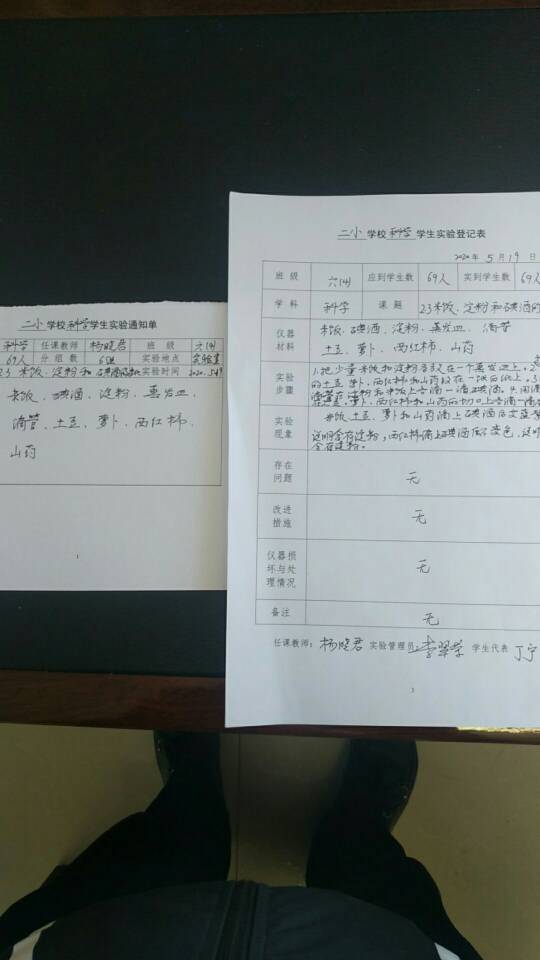 二小学校科学学生实验通知单
科学 任课教师 杨晓君 班级 六(4)
69人 分组数 6组 实验地点 实验室
2.3 米饭、淀粉和碘酒的 实验时间 2020.5.19
米饭、碘酒、淀粉、蒸发皿、
滴管、土豆、萝卜、西红柿、
山药
1
二小学校科学学生实验登记表
2020年5月19日
班级 六(4) 应到学生数 69人 实到学生数 69人
学科 科学 课题 2.3米饭、淀粉和碘酒的
仪器材料
米饭、碘酒、淀粉、蒸发皿、滴管
土豆、萝卜、西红柿、山药
实验步骤
1.把少量米饭和淀粉各放在一个蒸发皿上。2.
的土豆、萝卜、西红柿和山药放在一张白纸上。3.
滴管在淀粉和米饭上各滴一滴碘酒。4.用滴
土豆、萝卜、西红柿和山药的切口上各滴一滴
实验现象
米饭、土豆、萝卜和山药滴上碘酒后变蓝
说明含有淀粉；西红柿滴上碘酒后不变色，说明
含有淀粉。
存在问题 无
改进措施 无
仪器损坏与处理情况 无
备注 无
任课教师：杨晓君 实验管理员：李翠学 学生代表 丁宁
3